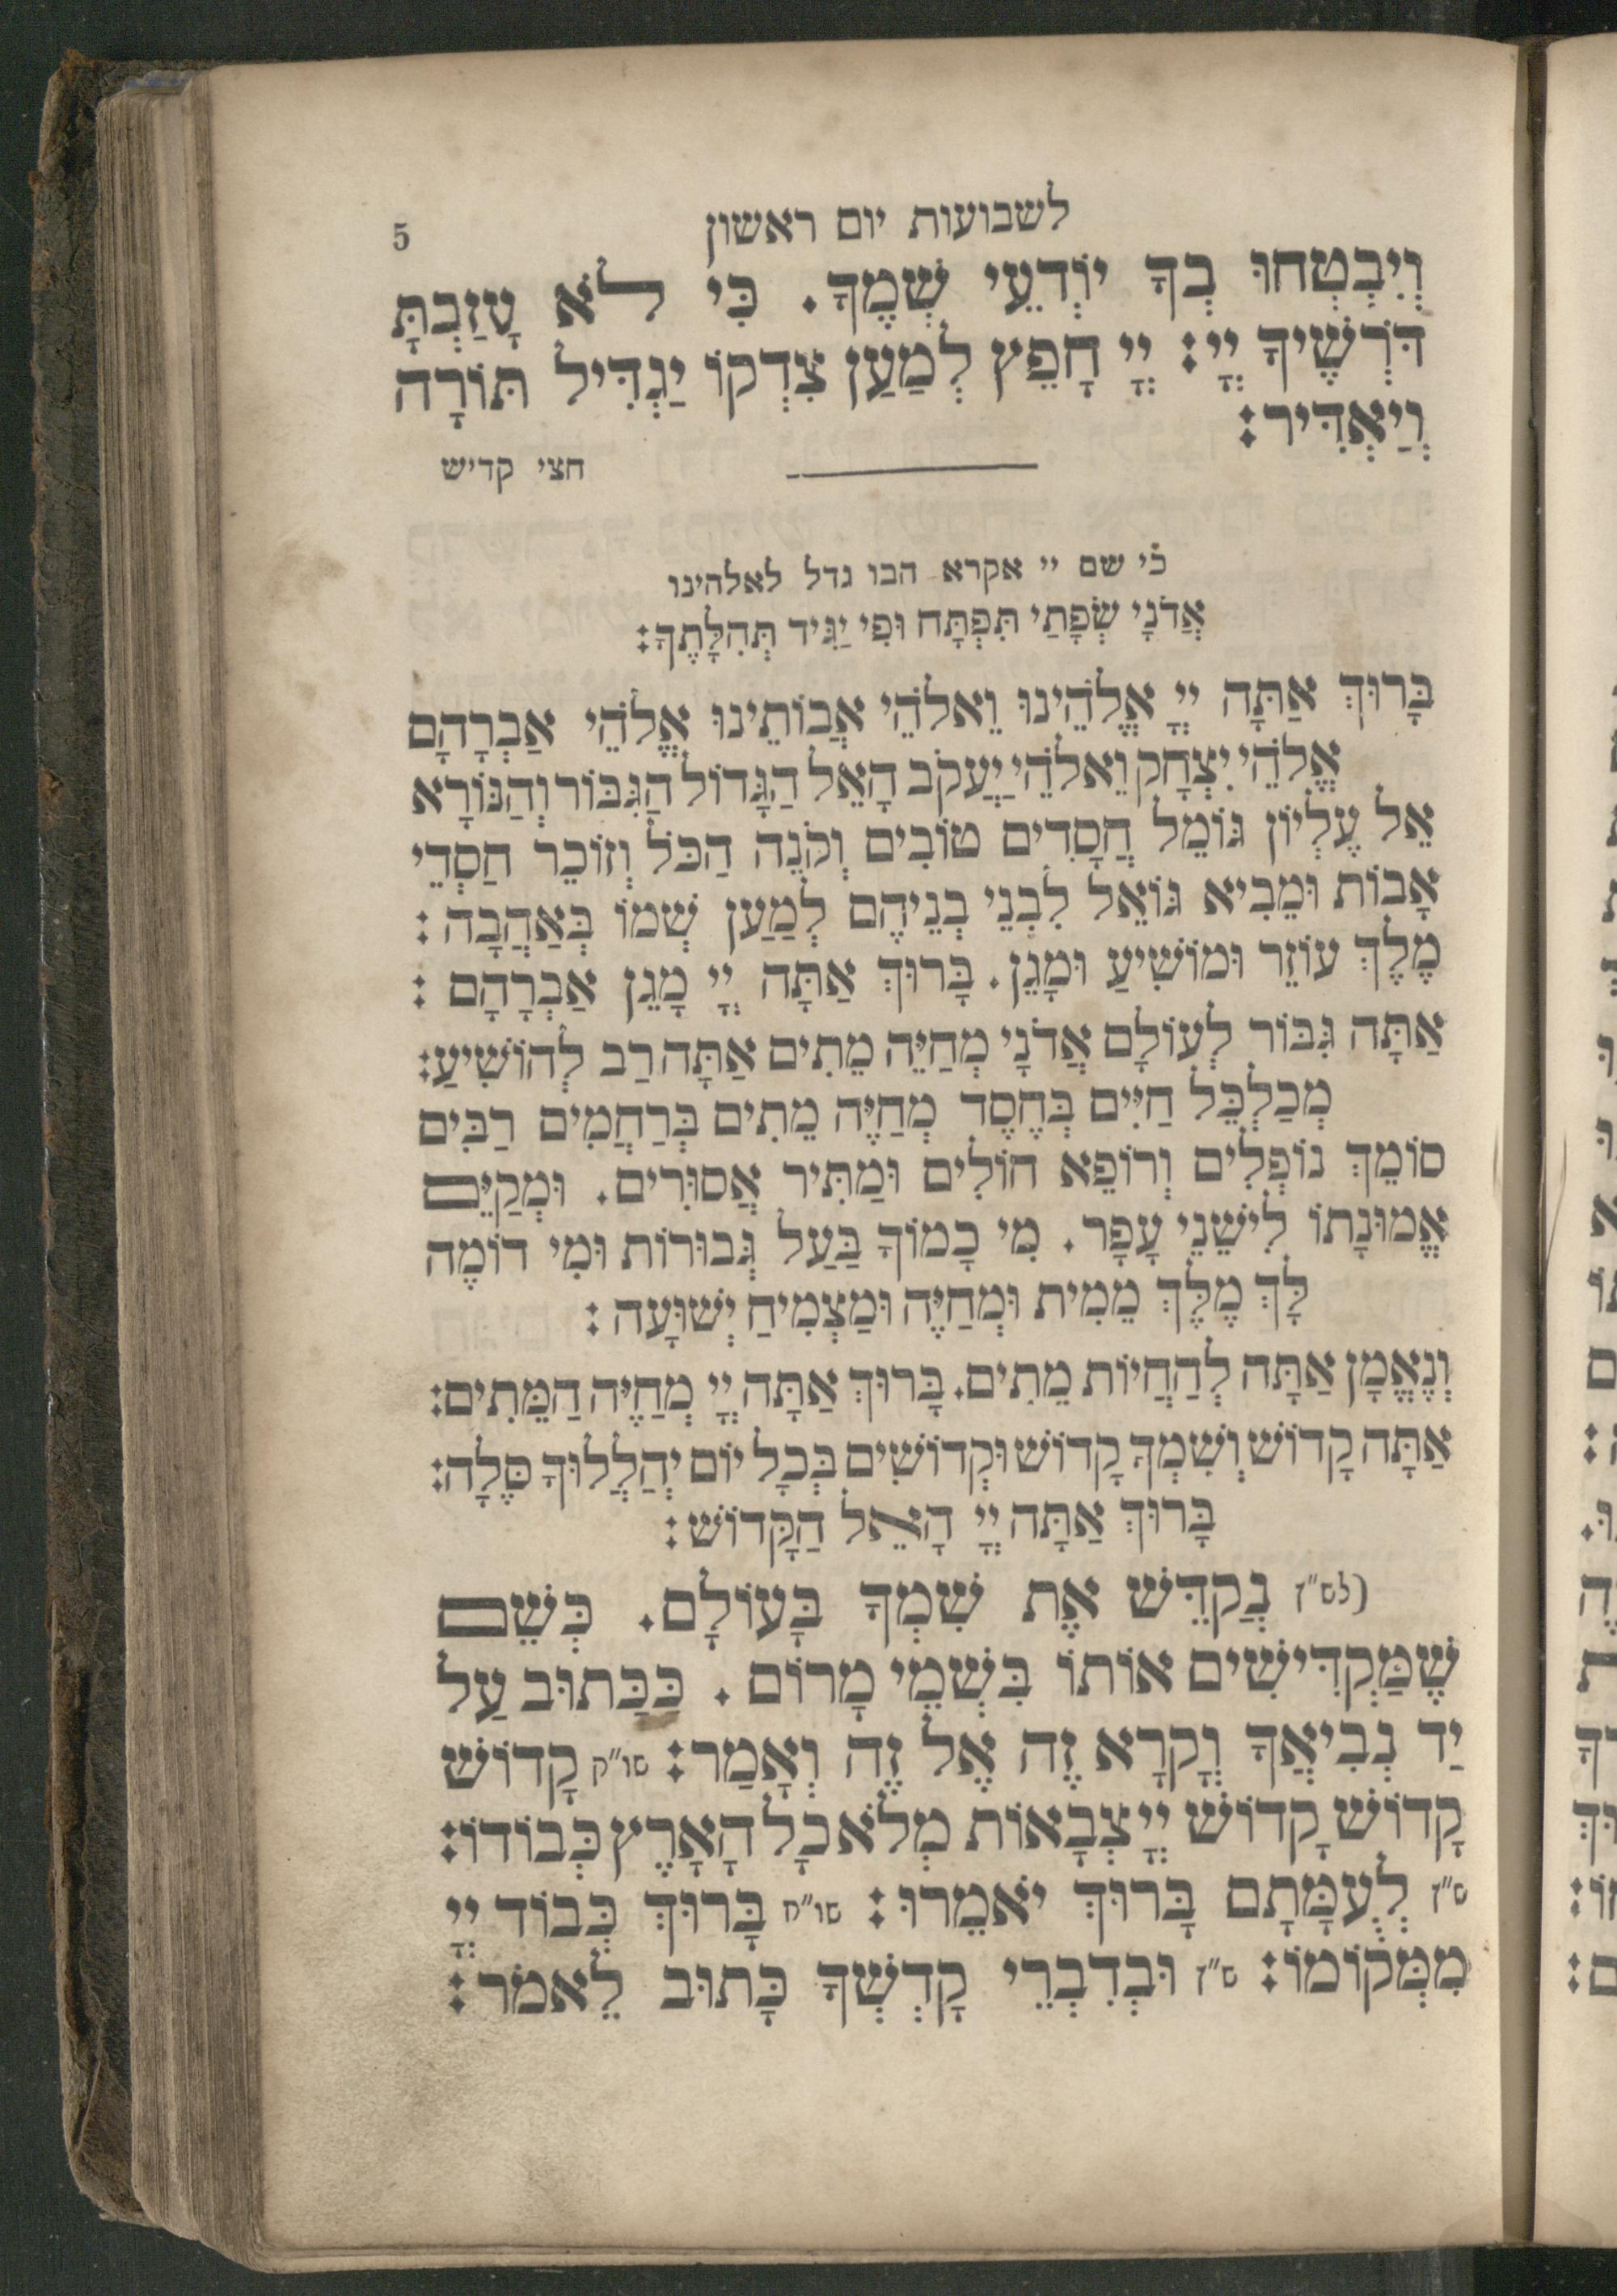 לשבועות יום ראשון 5
וְיִבְטְחוּ בְךָ יוֹדְעֵי שְׁמֶךָ. כִּי לֹא עָזַבְתָּ
דֹּרְשֶׁיךָ יְיָ: יְיָ חָפֵץ לְמַעַן צִדְקוֹ יַגְדִּיל תּוֹרָה
וְיַאְדִּיר:
חצי קדיש
כי שם יי אקרא הבו גדל לאלהינו
אֲדֹנָי שְׂפָתַי תִּפְתָּח וּפִי יַגִּיד תְּהִלָּתֶךָ:
בָּרוּךְ אַתָּה יְיָ אֱלֹהֵינוּ וֵאלֹהֵי אֲבוֹתֵינוּ אֱלֹהֵי אַבְרָהָם
אֱלֹהֵי יִצְחָק וֵאלֹהֵי יַעֲקֹב הָאֵל הַגָּדוֹל הַגִּבּוֹר וְהַנּוֹרָא
אֵל עֶלְיוֹן גּוֹמֵל חֲסָדִים טוֹבִים וְקֹנֵה הַכֹּל וְזוֹכֵר חַסְדֵי
אָבוֹת וּמֵבִיא גוֹאֵל לִבְנֵי בְנֵיהֶם לְמַעַן שְׁמוֹ בְּאַהֲבָה:
מֶלֶךְ עוֹזֵר וּמוֹשִׁיעַ וּמָגֵן. בָּרוּךְ אַתָּה יְיָ מָגֵן אַבְרָהָם:
אַתָּה גִּבּוֹר לְעוֹלָם אֲדֹנָי מְחַיֵּה מֵתִים אַתָּה רַב לְהוֹשִׁיעַ:
מְכַלְכֵּל חַיִּים בְּחֶסֶד מְחַיֶּה מֵתִים בְּרַחֲמִים רַבִּים
סוֹמֵךְ נוֹפְלִים וְרוֹפֵא חוֹלִים וּמַתִּיר אֲסוּרִים. וּמְקַיֵּם
אֱמוּנָתוֹ לִישֵׁנֵי עָפָר. מִי כָמוֹךָ בַּעַל גְּבוּרוֹת וּמִי דוֹמֶה
לָּךְ מֶלֶךְ מֵמִית וּמְחַיֶּה וּמַצְמִיחַ יְשׁוּעָה:
וְנֶאֱמָן אַתָּה לְהַחֲיוֹת מֵתִים. בָּרוּךְ אַתָּה יְיָ מְחַיֵּה הַמֵּתִים:
אַתָּה קָדוֹשׁ וְשִׁמְךָ קָדוֹשׁ וּקְדוֹשִׁים בְּכָל יוֹם יְהַלֲלוּךָ סֶּלָה:
בָּרוּךְ אַתָּה יְיָ הָאֵל הַקָּדוֹשׁ:
(לש״ז נְקַדֵּשׁ אֶת שִׁמְךָ בָּעוֹלָם. כְּשֵׁם
שֶׁמַּקְדִּישִׁים אוֹתוֹ בִּשְׁמֵי מָרוֹם. כַּכָּתוּב עַל
יַד נְבִיאֶךָ וְקָרָא זֶה אֶל זֶה וְאָמַר: קָדוֹשׁ
קָדוֹשׁ קָדוֹשׁ יְיָ צְבָאוֹת מְלֹא כָל הָאָרֶץ כְּבוֹדוֹ:
ש״ז לְעֻמָּתָם בָּרוּךְ יֹאמֵרוּ: בָּרוּךְ כְּבוֹד יְיָ
מִמְּקוֹמוֹ: ש״ז וּבְדִבְרֵי קָדְשְׁךָ כָּתוּב לֵאמֹר: